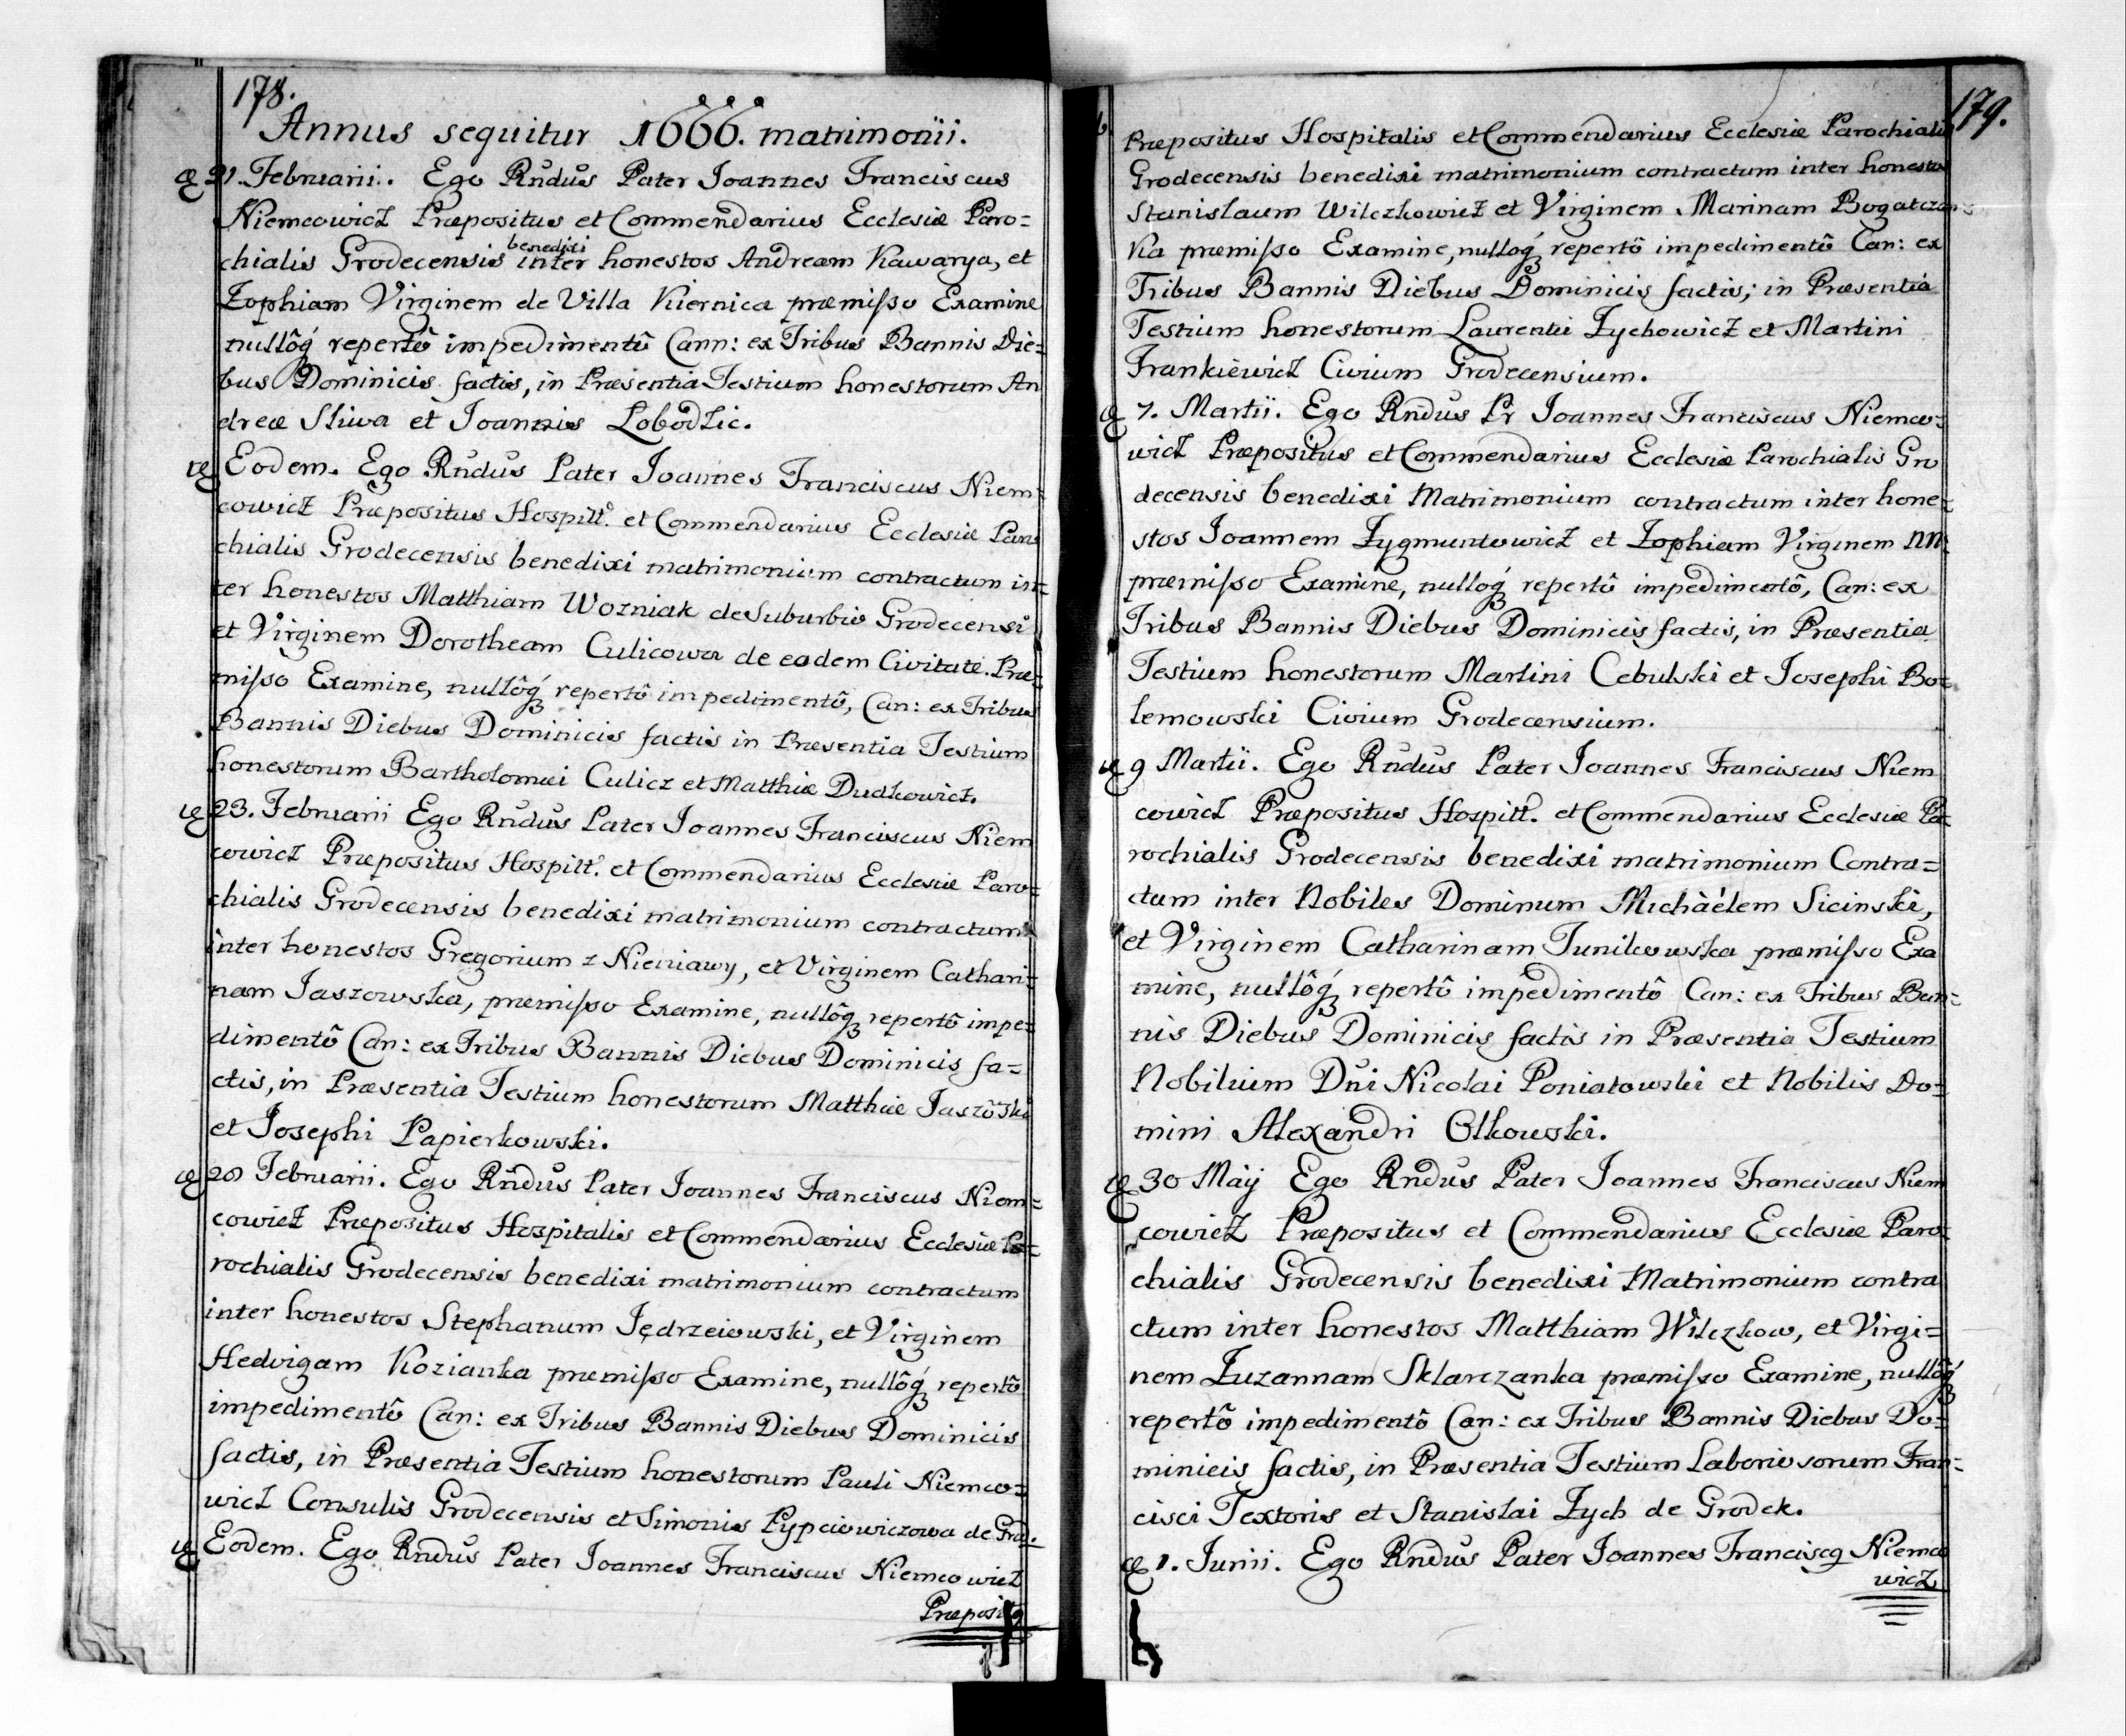 178.
Annus sequitur 1666. matrimonii.
21. Februarii. Ego Rndus Pater Joannes Franciscus
Niemcowicz Præpositus et Commendarius Ecclesiæ Paro=
chialis Grodecensis benedixi inter honestos Andream Kawarya, et
Zophiam Virginem de Villa Kiernica præmisso Examine
nullôq́ repertô impedimentô Cann: ex Tribus Bannis Die=
bus Dominicis factis, in Præsentia Testium honestorum An
dreæ Sliwa et Joannis Lobodzic.
Eodem. Ego Rndus Pater Joannes Franciscus Niem=
cowicz Præpositus Hospitt. et Commendarius Ecclesiæ Paro
chialis Grodecensis benedixi matrimonium contractum in=
ter honestos Matthiam Wozniak de Suburbio Grodecensi
et Virginem Dorotheam Culicowa de eadem Civitate. Præ=
misso Examine, nullôq́ repertô impedimentô, Can: ex Tribus
Bannis Diebus Dominicis factis in Præsentia Testium
honestorum Bartholomæi Culicz et Matthiæ Dudkowicz.
23. Februarii Ego Rndus Pater Joannes Franciscus Niem
cowicz Præpositus Hospitt. et Commendarius Ecclesiæ Paro=
chialis Grodecensis benedixi matrimonium contractum
inter honestos Gregorium z Nieniawy, et Virginem Cathari=
nam Jaszowska, præmisso Examine, nullôq repertô impe=
dimentô Can: ex Tribus Bannis Diebus Dominicis fa=
ctis, in Præsentia Testium honestorum Matthiæ Jaszôski
et Josephi Papierkowski.
28 Februarii. Ego Rndus Pater Joannes Franciscus Niem=
cowicz Præpositus Hospitalis et Commendarius Ecclesiæ Pa=
rochialis Grodecensis benedixi matrimonium contractum
inter honestos Stephanum Jędrzeiowski, et Virginem
Hedvigam Kozianka præmisso Examine, nullôq́ repertô
impedimentô Can: ex Tribus Bannis Diebus Dominicis
factis, in Præsentia Testium honestorum Pauli Niemco=
wicz Consulis Grodecensis et Simonis Pypciowiczowa de Grod.
Eodem. Ego Rndus Pater Joannes Franciscus Niemcowicz
Præpositq
179.
Præpositus Hospitalis et Commendarius Ecclesiæ Parochialis
Grodecensis benedixi matrimonium contractum inter honestos
Stanislaum Wilczkowicz et Virginem Marinam Bogatczan=
ka præmisso Examine, nulloq́ repertô impedimentô Can: ex
Tribus Bannis Diebus Dominicis factis, in Præsentia
Testium honestorum Laurentii Zychowicz et Martini
Frankiewicz Civium Grodecensium.
7. Martii. Ego Rndus Pr Joannes Franciscus Niemco=
wicz Præpositus et Commendarius Ecclesiæ Parochialis Gro
decensis benedixi Matrimonium contractum inter hone=
stos Joannem Zygmuntowicz et Zophiam Virginem NN:
præmisso Examine, nulloq́ repertô impedimentô, Can: ex
Tribus Bannis Diebus Dominicis factis, in Præsentia
Testium honestorum Martini Cebulski et Josephi Bo=
lemowski Civium Grodecensium.
9 Martii. Ego Rndus Pater Joannes Franciscus Niem
cowicz Præpositus Hospitt. et Commendarius Ecclesiæ Pa
rochialis Grodecensis benedixi matrimonium Contra=
ctum inter Nobiles Dominum Michàélem Sicinski,
et Virginem Catharinam Tunikowska præmisso Exa
mine, nullôq́ repertô impedimentô Can: ex Tribus Ban=
nis Diebus Dominicis factis in Præsentia Testium
Nobilium Dni Nicolai Poniatowski et Nobilis Do=
mini Alexandri Olkowski.
30 Maij Ego Rndus Pater Joannes Franciscus Niem
cowicz Præpositus et Commendarius Ecclesiæ Paro=
chialis Grodecensis benedixi Matrimonium contra
ctum inter honestos Matthiam Wilczkow, et Virgi=
nem Zuzannam Sklarczanka præmisso Examine, nullôq́
repertô impedimentô Can: ex Tribus Bannis Diebus Do=
minicis factis, in Præsentia Testium Laboriosorum Fran=
cisci Textoris et Stanislai Zych de Grodek.
1. Junii. Ego Rndus Pater Joannes Franciscq Niemco
wicz